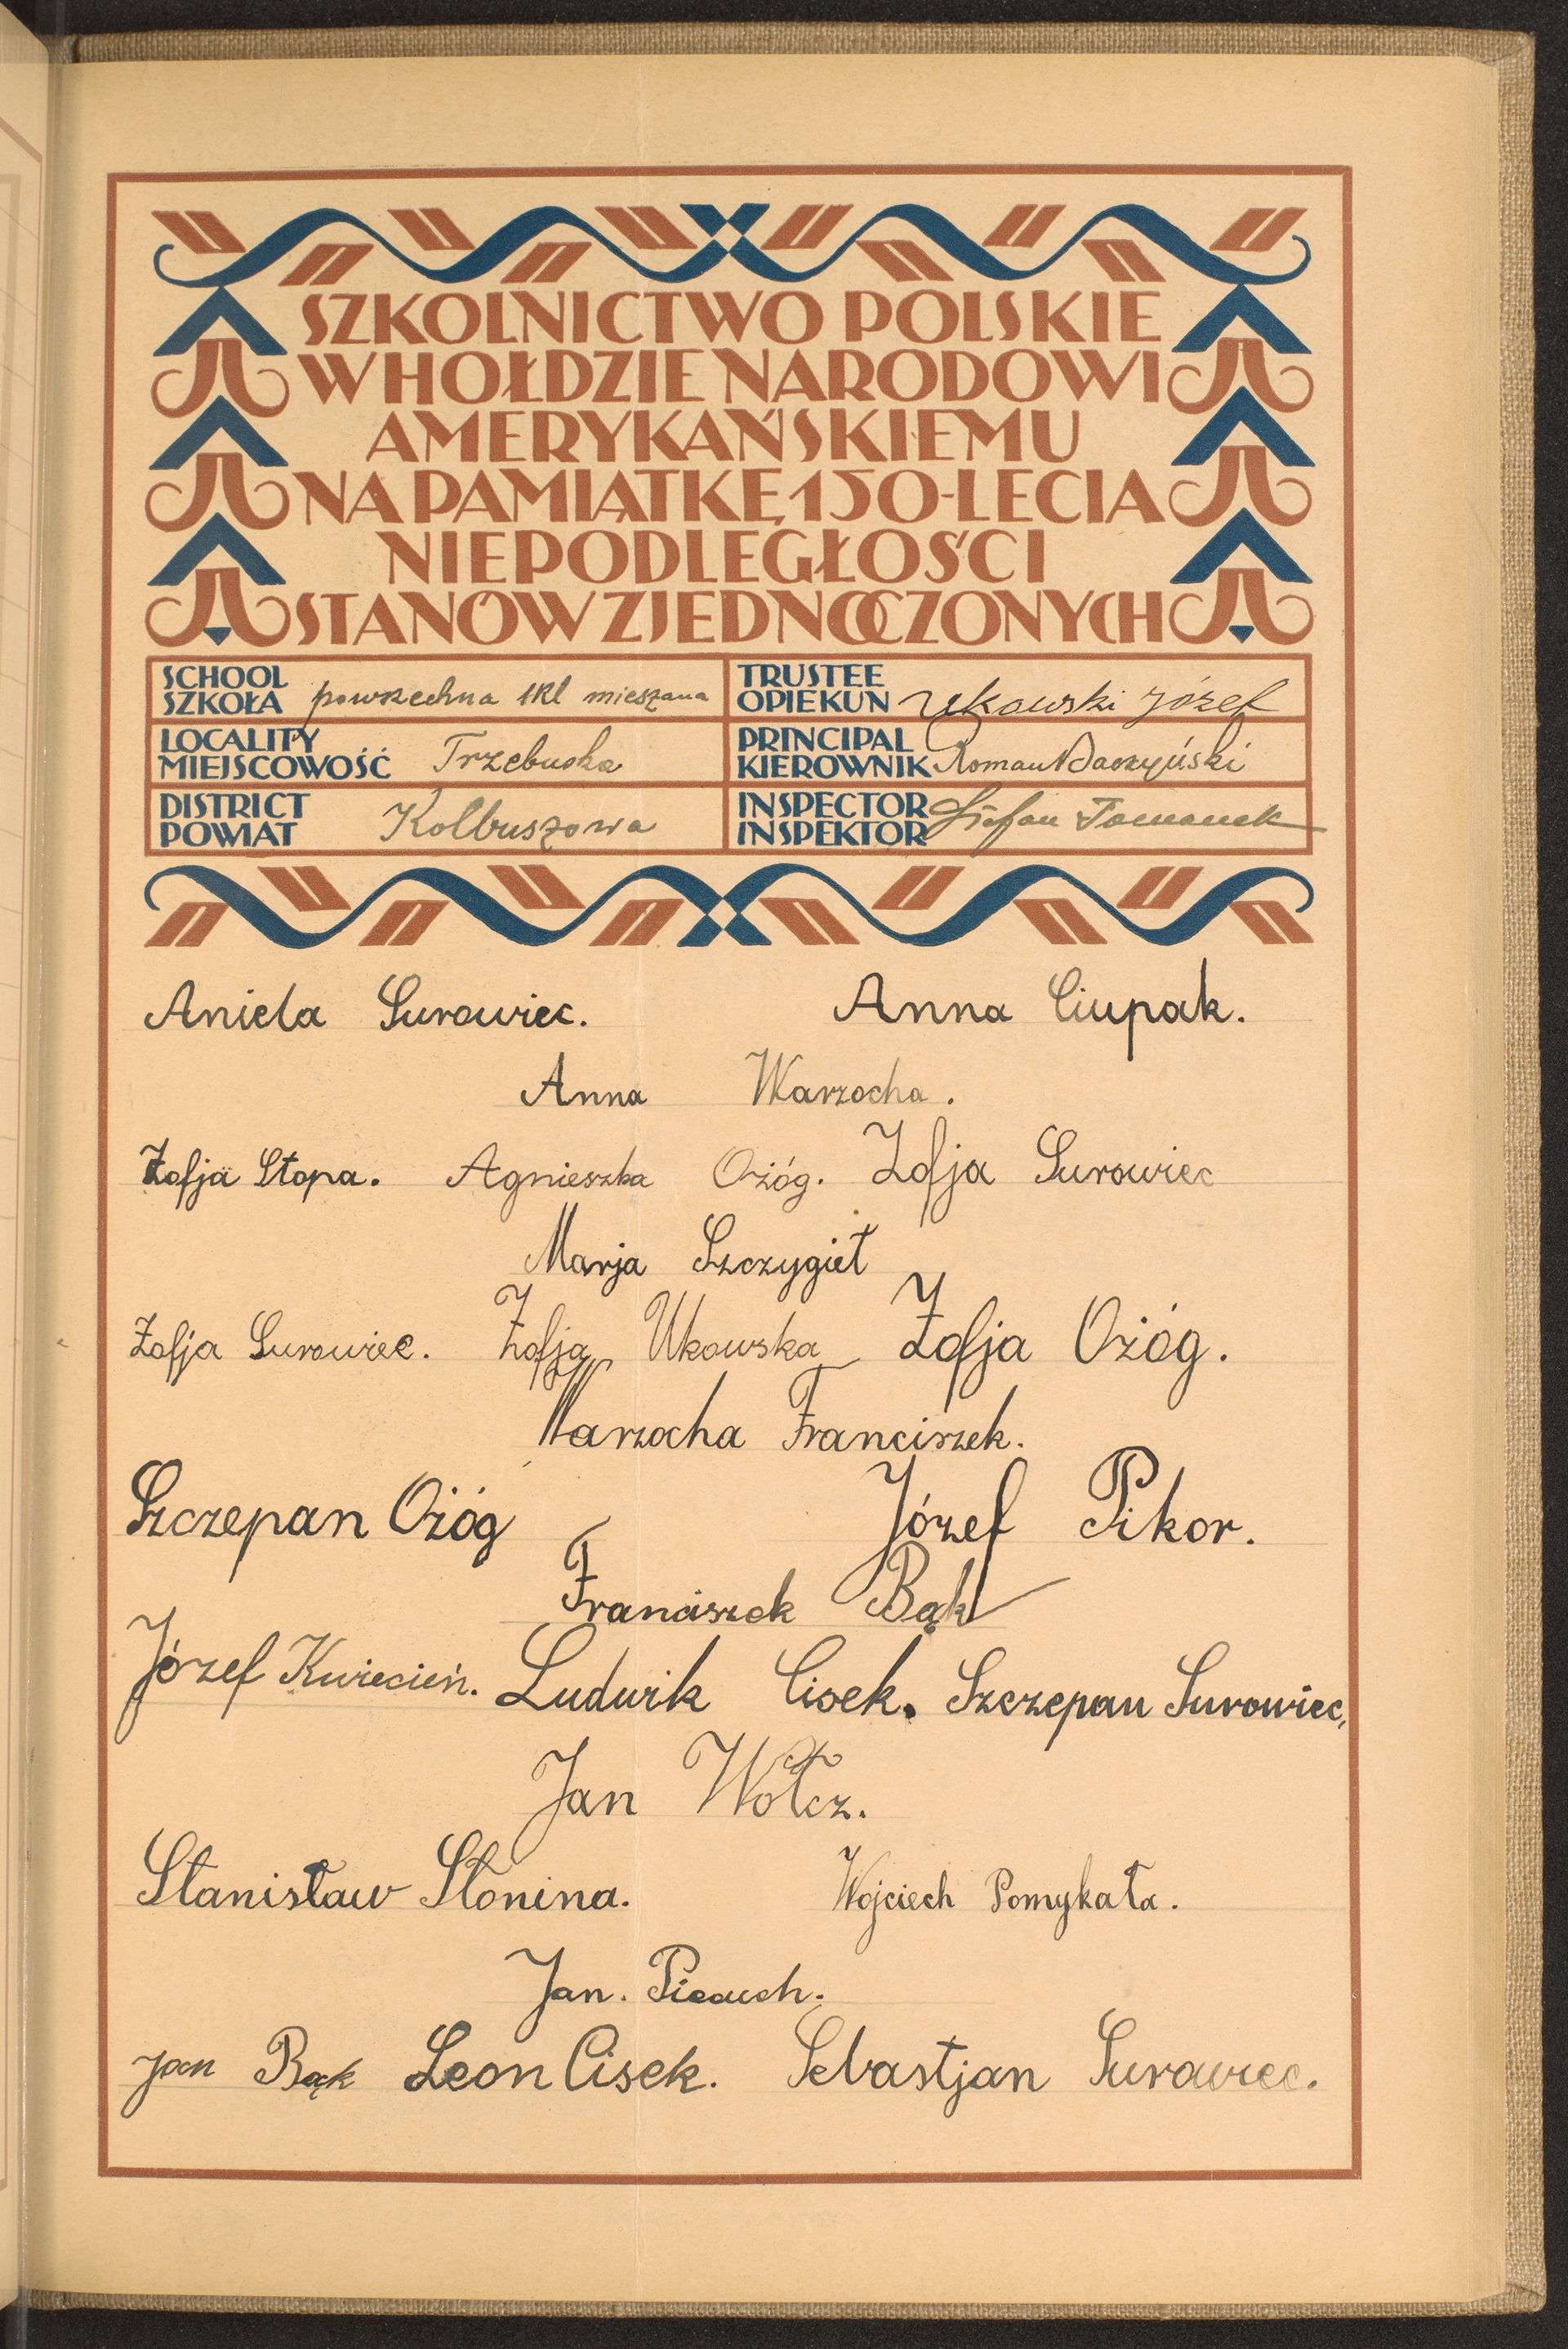 SZKOLNICTWO POLSKIE
W HOŁDZIE NARODOWI
AMERYKAŃSKIEMU
NA PAMIĄTKĘ 150-LECIA
NIEPODLEGŁOŚCI
STANÓW ZJEDNOCZONYCH
SCHOOL
SZKOŁA powszechna 1kl mieszana
TRUSTEE
OPIEKUN Ukowski Józef
LOCALITY
MIEJSCOWOŚĆ Trzebuska
PRINCIPAL
KIEROWNIK Roman
DISTRICT
POWIAT Kolbuszowa
INSPECTOR
INSPEKTOR Stefan Tomanek
Aniela Surowiec. Anna Ciupak.
Anna Warzocha.
Zofja Stopa. Agnieszka Ożóg. Zofja Surowiec
Marja Szczygieł
Zofja Surowiec. Zofja Ukowska Zofja Ożóg.
Warzocha Franciszek.
Szczepan Ożóg Józef Pikor.
Franciszek Bąk
Józef Kwiecień. Ludwik Cisek. Szczepan Surowiec,
Jan Wołcz.
Stanisław Słonina. Wojciech Pomykała.
Jan.
Jan Bąk Leon Cisek. Sebastjan Surowiec.